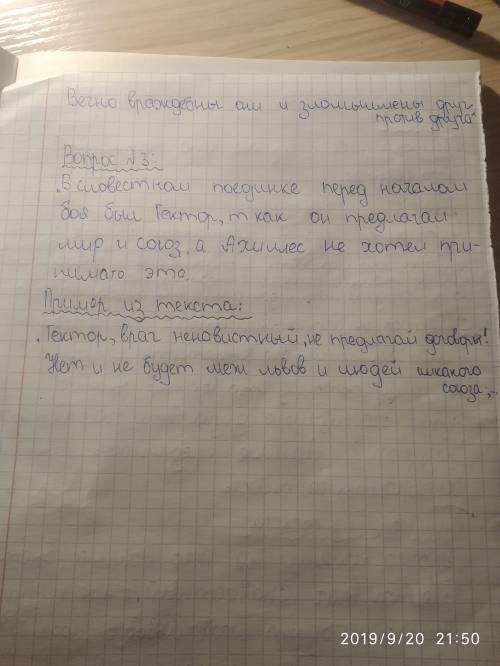 Вечно враждебны они и зломышлены друг
против друга"
Вопрос №3:
В словестном поединке перед началом
боя был Гектор, т как он предлагал
мир и союз, а Ахиллес не хотел при-
нимать это.
Пример из текста:
Гектор, враг ненавистный, не предлагай договоры!
Нет и не будет меж львов и людей никакого
союза,..
2019/9/20 21:50